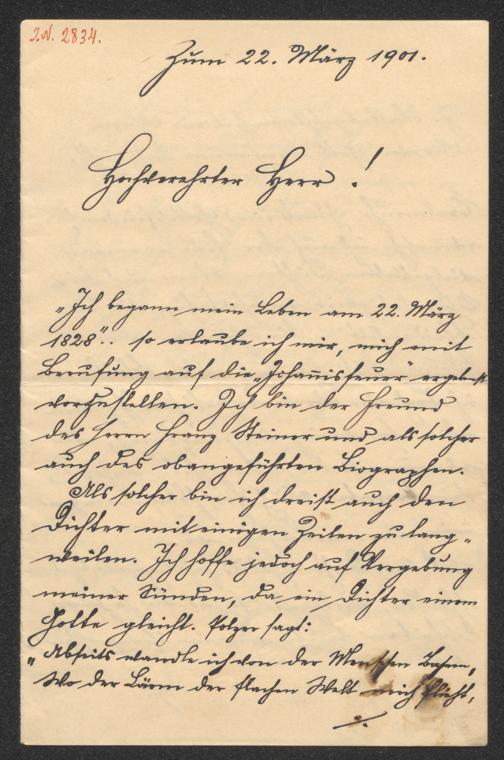 J.N. 2834.
Zum 22. März 1901.
Hochverehrter Herr!
„Ich begann mein Leben am 22. März
1828“. so erlaube ich mir, mich mit
Berufung auf die „Johannisfeuer“ ergebenst
vorzustellen. Ich bin der Freund
des Herrn Franz Steiner und als solcher
auch des obangeführten Biographen.
Als solcher bin ich dreist auch den
Dichter mit einigen Zeilen zu lang-
weilen. Ich hoffe jedoch auf Vergebung
meiner Sünden, da ein Dichter einem
Gotte gleicht. Polzer sagt:
„Abseits wandle ich von der Menschen Bahnen,
Wo der Lärm der flachen Welt mich flieht,
./.